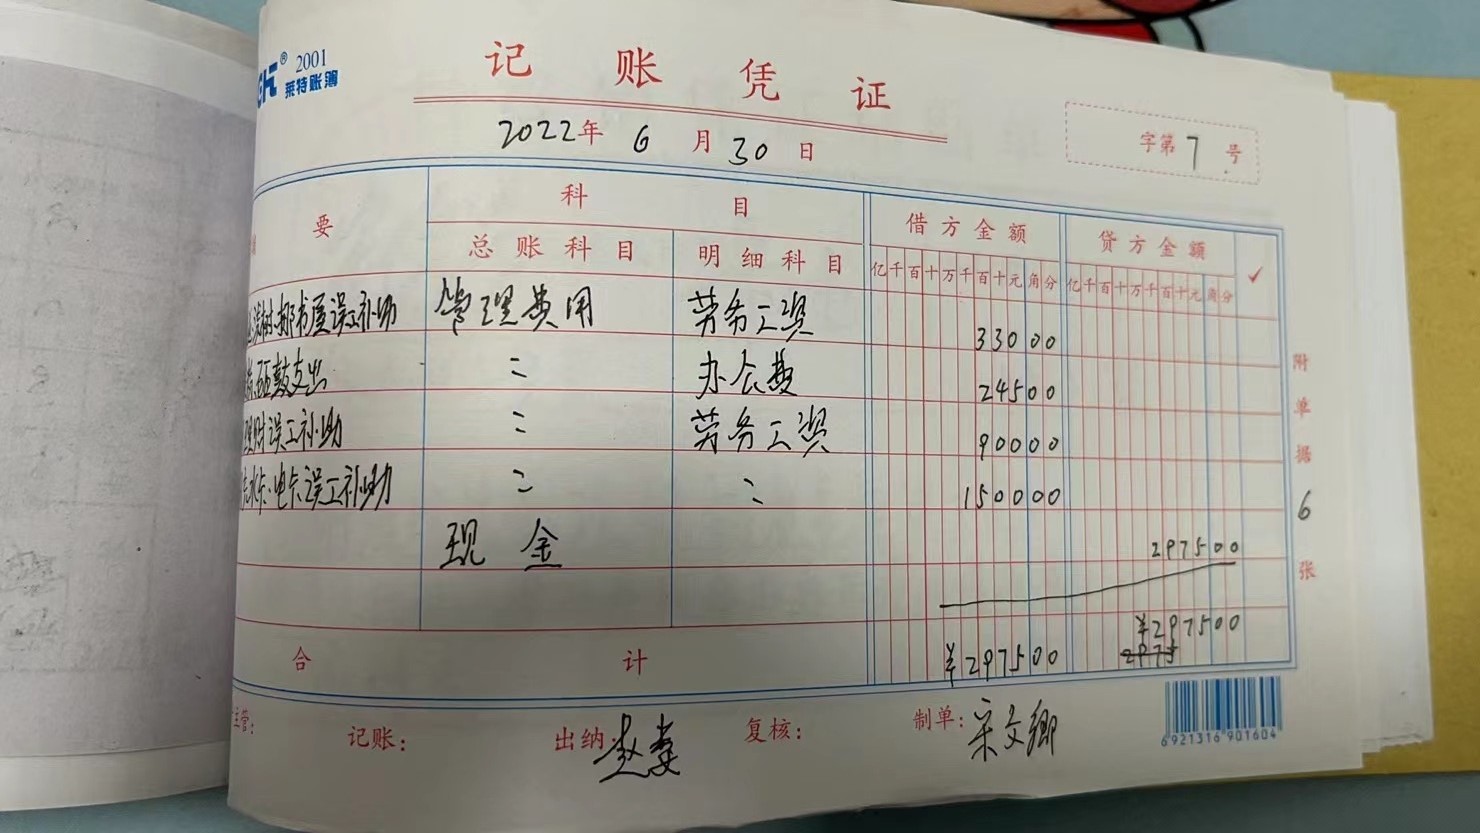 ® 2001
莱特账簿
记账凭证
2022年 6月 30日
字第 7 号
要 科目 借方金额 贷方金额 ✓
总账科目 明细科目 亿千百十万千百十元角分 亿千百十万千百十元角分
书屋误工补助 管理费用 劳务工资 33000
支出 〃 办公费 24500
误工补助 〃 劳务工资 90000
水卡、电卡误工补助 〃 〃 150000
现金 297500
合计 ¥297500 ¥297500
2975
附单据 6 张
主管: 记账: 出纳: 赵 复核: 制单: 宋文卿
6921316901604